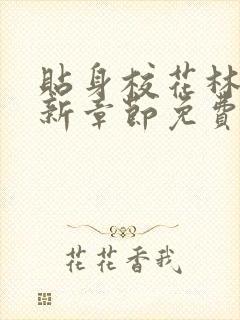 貼身校花林
新章節免費
花花香我